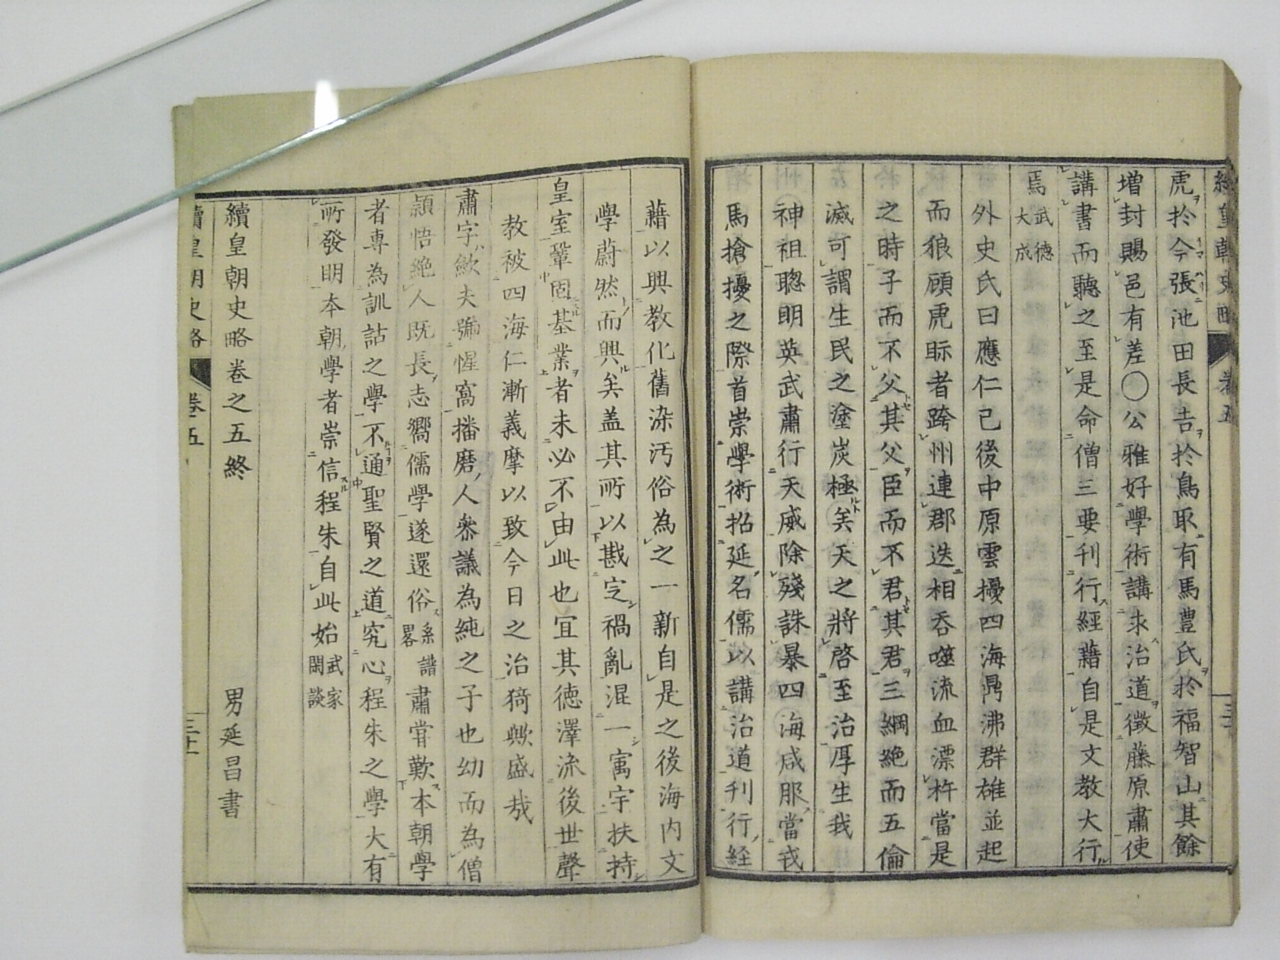 虎於今張池田長吉於鳥取有馬豊氏於福智山其餘
増封賜邑有差〇公雅好學術講求治道徴藤原肅使
講書而聽之至是命僧三要刊行經藉自是文教大行
焉武德大成
外史氏曰應仁已後中原雲擾四海鼎沸群雄並起
而狼顧虎眎者跨州連郡迭相吞噬流血漂杵當是
之時子而不父其父臣而不君其君三綱絶而五倫
滅可謂生民之塗炭極矣天之將啓至治厚生我
神祖聰明英武肅行天威除殘誅暴四海咸服當戎
馬搶擾之際首崇學術招延名儒以講治道刊行經
藉以興教化舊染汚俗為之一新自是之後海内文
學蔚然而興矣盖其所以戡定禍亂混一寓宇扶持
皇室鞏固基業者未必不由此也宜其德澤流後世聲
教被四海仁漸義摩以致今日之治猗歟盛哉
肅字歛夫號惺窩播磨人參議為純之子也幼而為僧
頴悟絶人既長志嚮儒學遂還俗系譜畧肅甞歎本朝學
者專為訓詁之學不通聖賢之道究心程朱之學大有
所發明本朝學者崇信程朱自此始武家閑談
續皇朝史略卷之五終
男延昌書
續皇朝史略
卷五